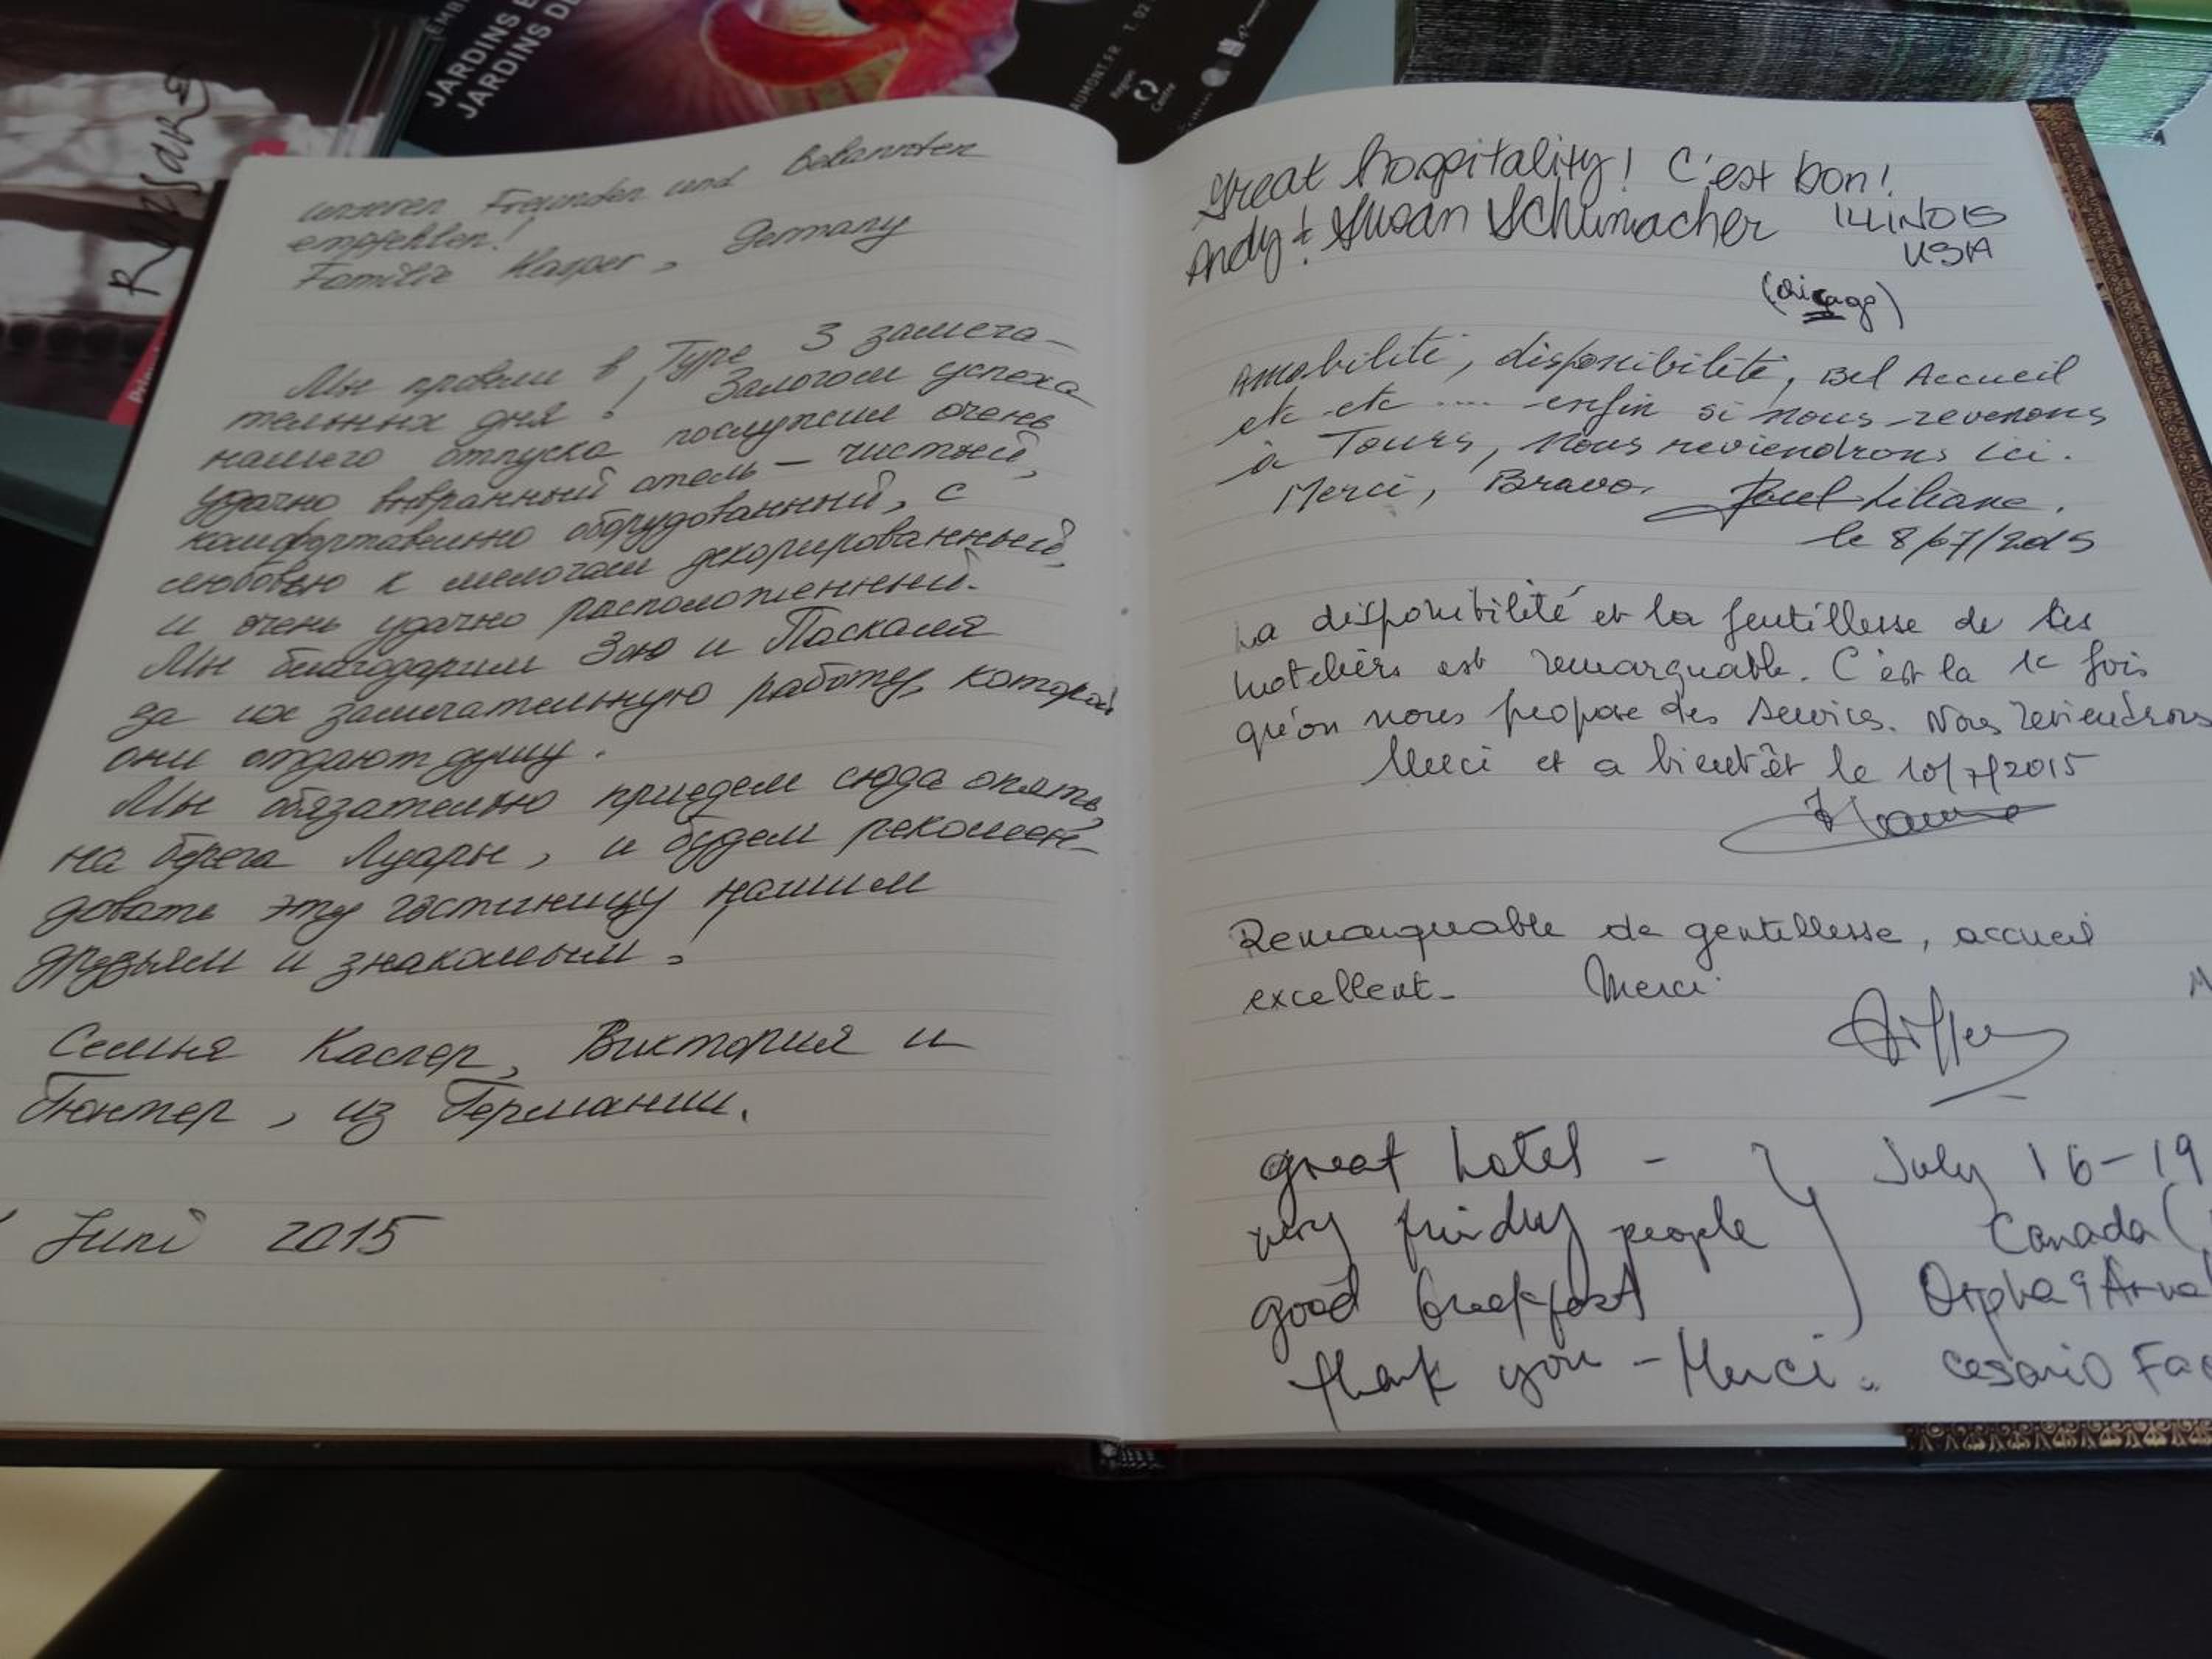 JARDINS
JARDINS DE
AUMONT.FR
Région
Centre
RONSARD
unseren Freunden und Bekannten
empfehlen!
Familie Kasper, Germany
Мы провели в Туре 3 замеча-
тельных дня! Залогом успеха
нашего отпуска послужил очень
удачно выбранный отель – чистый,
комфортабельно оборудованный, с
любовью к мелочам декорированный,
и очень удачно расположенный.
Мы благодарим Зою и Паскаля
за их замечательную работу, которой
они отдают душу.
Мы обязательно приедем сюда опять,
на берега Луары, и будем рекомен-
довать эту гостиницу нашим
друзьям и знакомым!
Семья Каспер, Виктория и
Гюнтер, из Германии.
Juni 2015
Great hospitality! C'est bon!
Andy & Susan Schumacher ILLINOIS
USA
(Chicago)
Amabilité, disponibilité, Bel Accueil
etc etc .... enfin si nous revenons
à Tours, nous reviendrons ici.
Merci, Bravo. Liliane.
le 8/07/2015
La disponibilité et la gentillesse de les
hoteliers est remarquable. C'est la 1e fois
qu'on nous propose des services. Nous reviendrons
Merci et a bientôt le 10/7/2015
Remarquable de gentillesse, accueil
excellent- Merci
great hotel - July 16-19
very friendly people Canada (
good breakfast Orpha & Arna
thank you - Merci. Cesario Fa